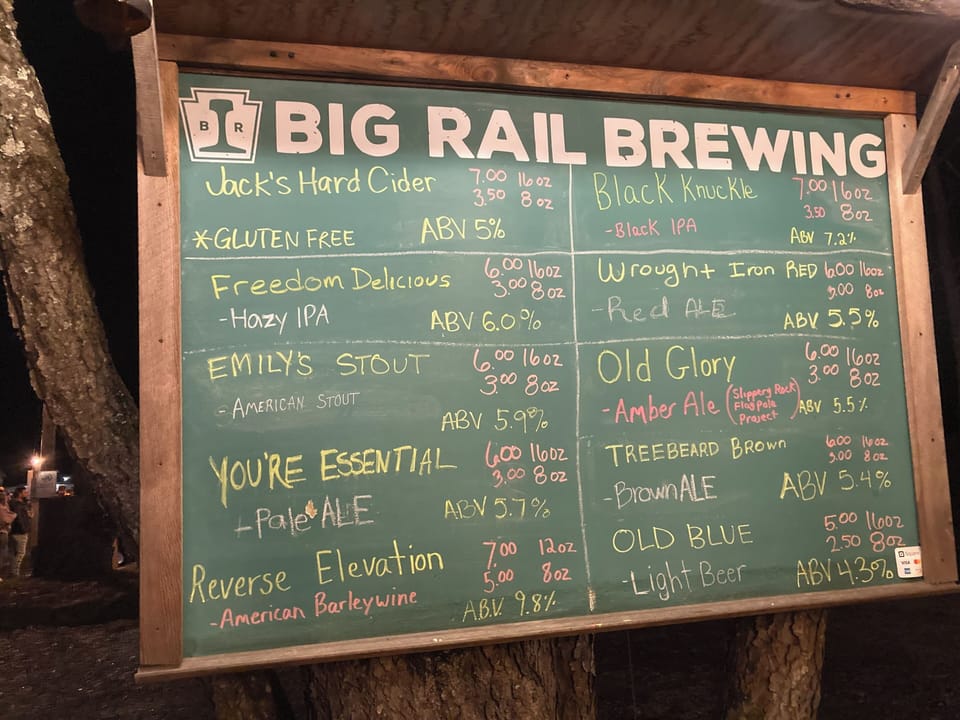 B R
BIG RAIL BREWING
Jack's Hard Cider 7.00 16oz
3.50 8oz
*GLUTEN FREE ABV 5%
Freedom Delicious 6.00 16oz
3.00 8oz
-Hazy IPA ABV 6.0%
EMILY'S STOUT 6.00 16oz
3.00 8oz
-AMERICAN STOUT
ABV 5.9%
YOU'RE ESSENTIAL 6.00 16oz
3.00 8oz
-Pale ALE ABV 5.7%
Reverse Elevation 7.00 12oz
5.00 8oz
-American Barleywine ABV. 9.8%
Black Knuckle 7.00 16oz
3.50 8oz
-Black IPA ABV 7.2%
Wrought Iron RED 6.00 16oz
3.00 8oz
-Red ALE ABV 5.5%
Old Glory 6.00 16oz
3.00 8oz
-Amber Ale (Slippery Rock
Flag Pole
Project) ABV 5.5%
TREEBEARD Brown 6.00 16oz
3.00 8oz
-Brown ALE ABV 5.4%
OLD BLUE 5.00 16oz
2.50 8oz
-Light Beer ABV 4.3%
Square
VISA